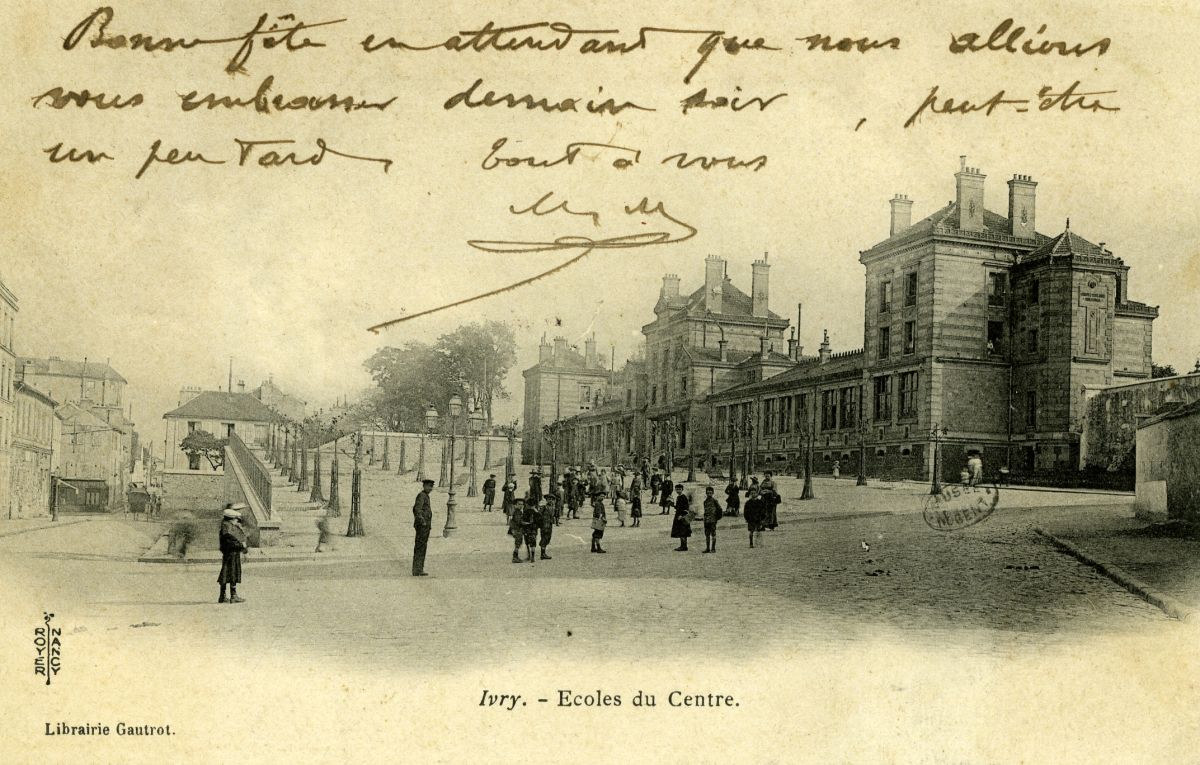 Bonne fête en attendant que nous allions
vous embrasser demain soir, peut-être
un peu tard tout à vous
ROYER
NANCY
Ivry. - Ecoles du Centre.
Librairie Gautrot.